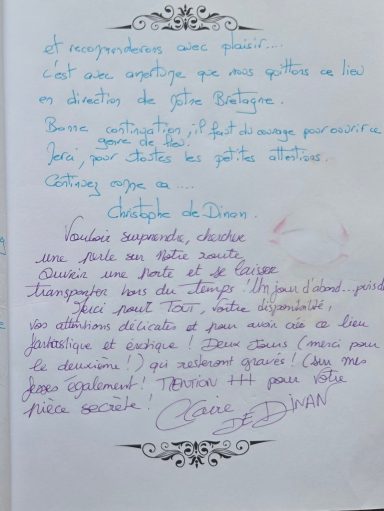 et recommenderons avec plaisir....
c'est avec amertume que nous quittons ce lieu
en direction de Notre Bretagne.
Bonne continuation, il faut du courage pour ouvrir ce
genre de lieu.
Merci, pour toutes les petites attentions.
Continuez comme ça....
Christophe de Dinan.
Vouloir surprendre, chercher
une perle sur notre route
Ouvrir une porte et se laisser
transporter hors du temps ! Un jour d'abord... puis d
Merci pour TOUT, votre disponibilité,
vos attentions délicates et pour avoir créé ce lieu
fantastique et érotique ! Deux jours (merci pour
le deuxième !) qui resteront gravés ! (sur mes
fesses également ! MENTION +++ pour votre
pièce secrète !
Claire
DE DINAN